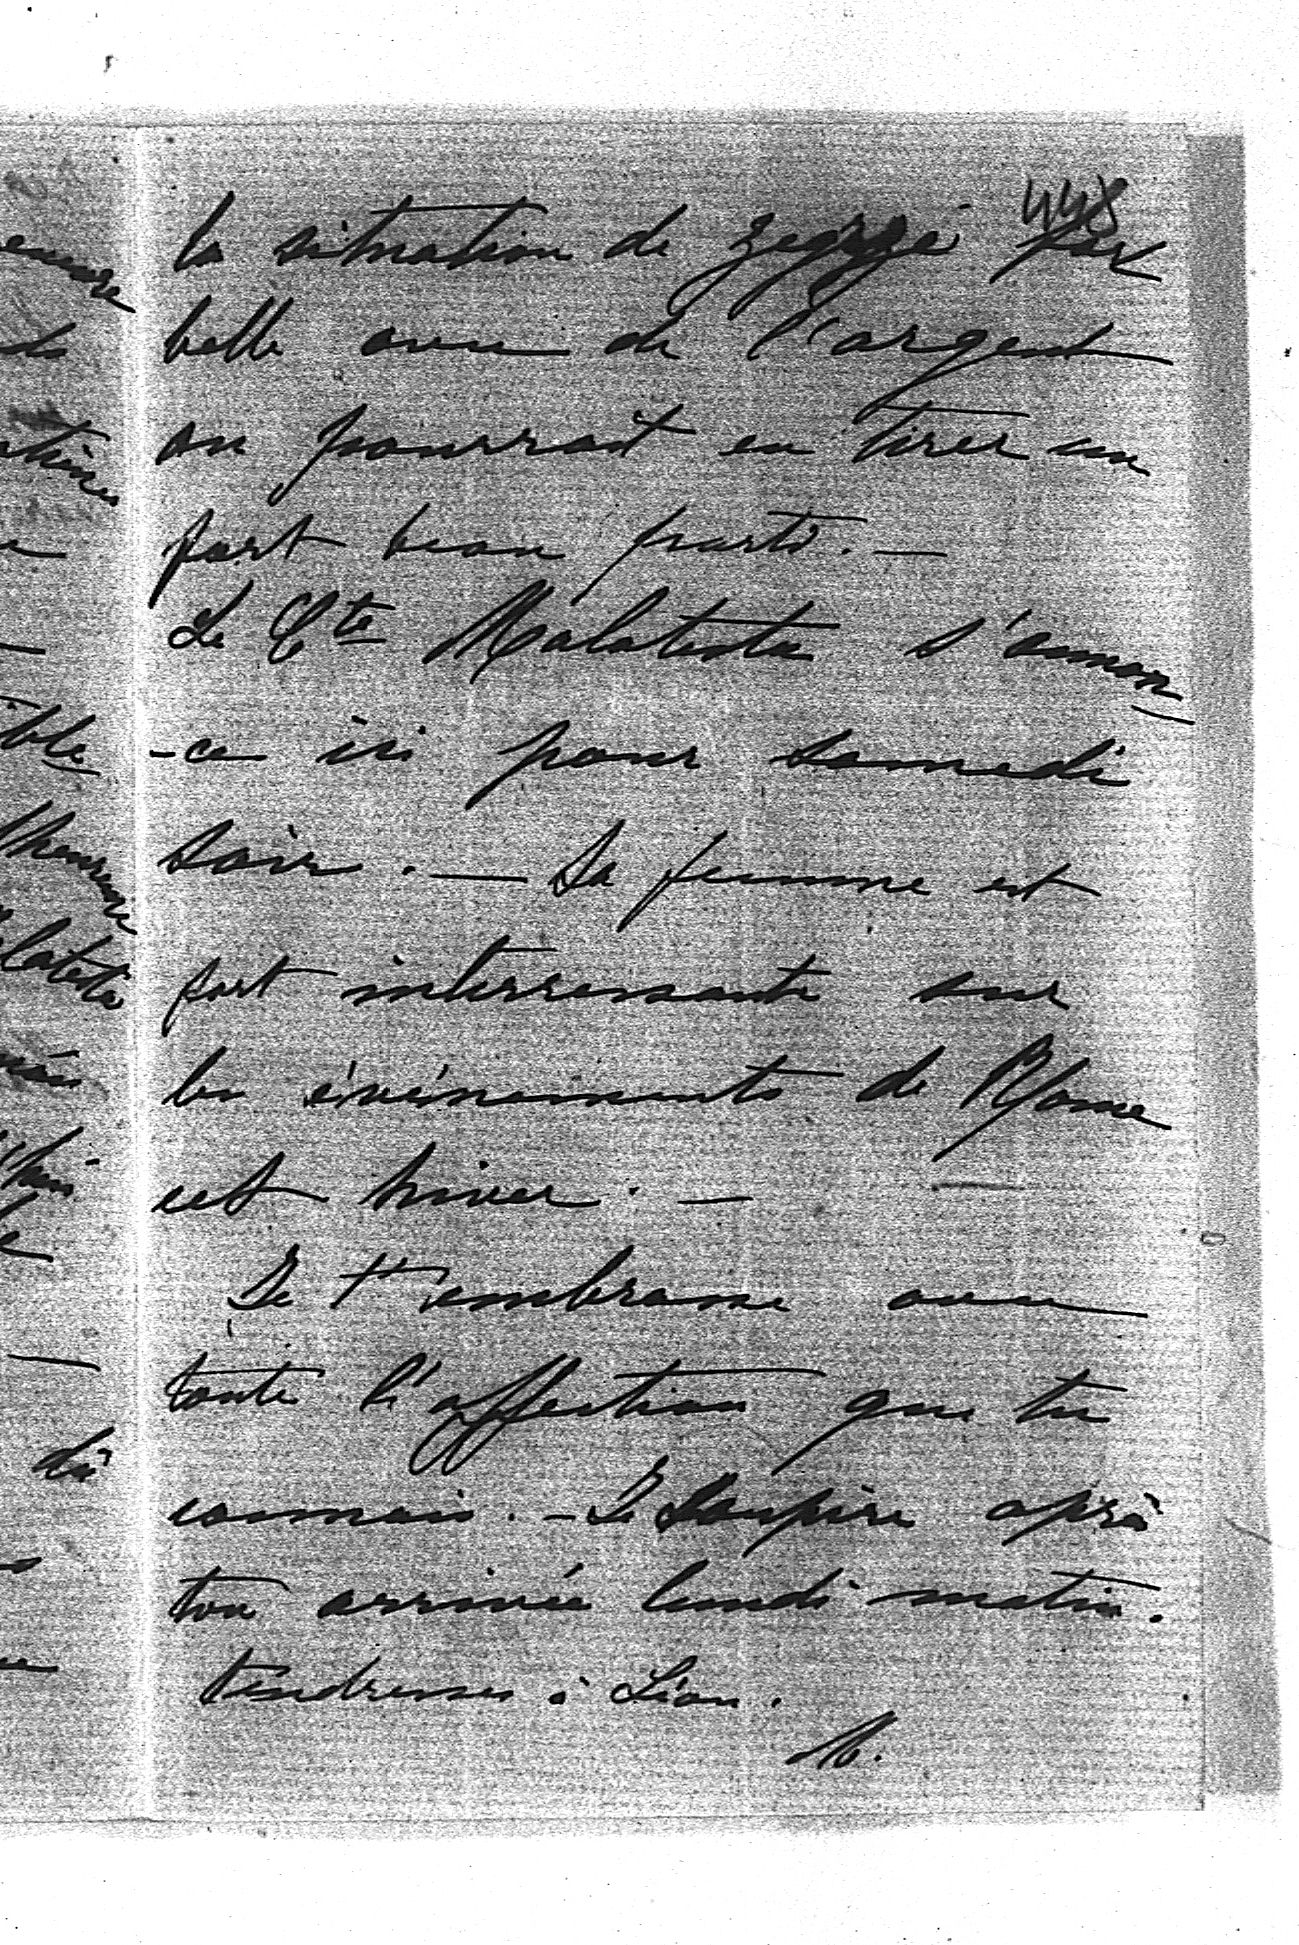 448
la situation de Zegrzé est
belle avec de l'argent
on pourrait en tirer un
fort beau parti. —
Le Cte Malatesta s'annon
-ce ici pour samedi
soir. — Sa femme est
fort interressante sur
les événements de Rome
cet hiver. —
Je t'embrasse avec
toute l'affection que tu
connais. — Je soupire après
ton arrivée lundi matin.
tendresses à Léon.
M.